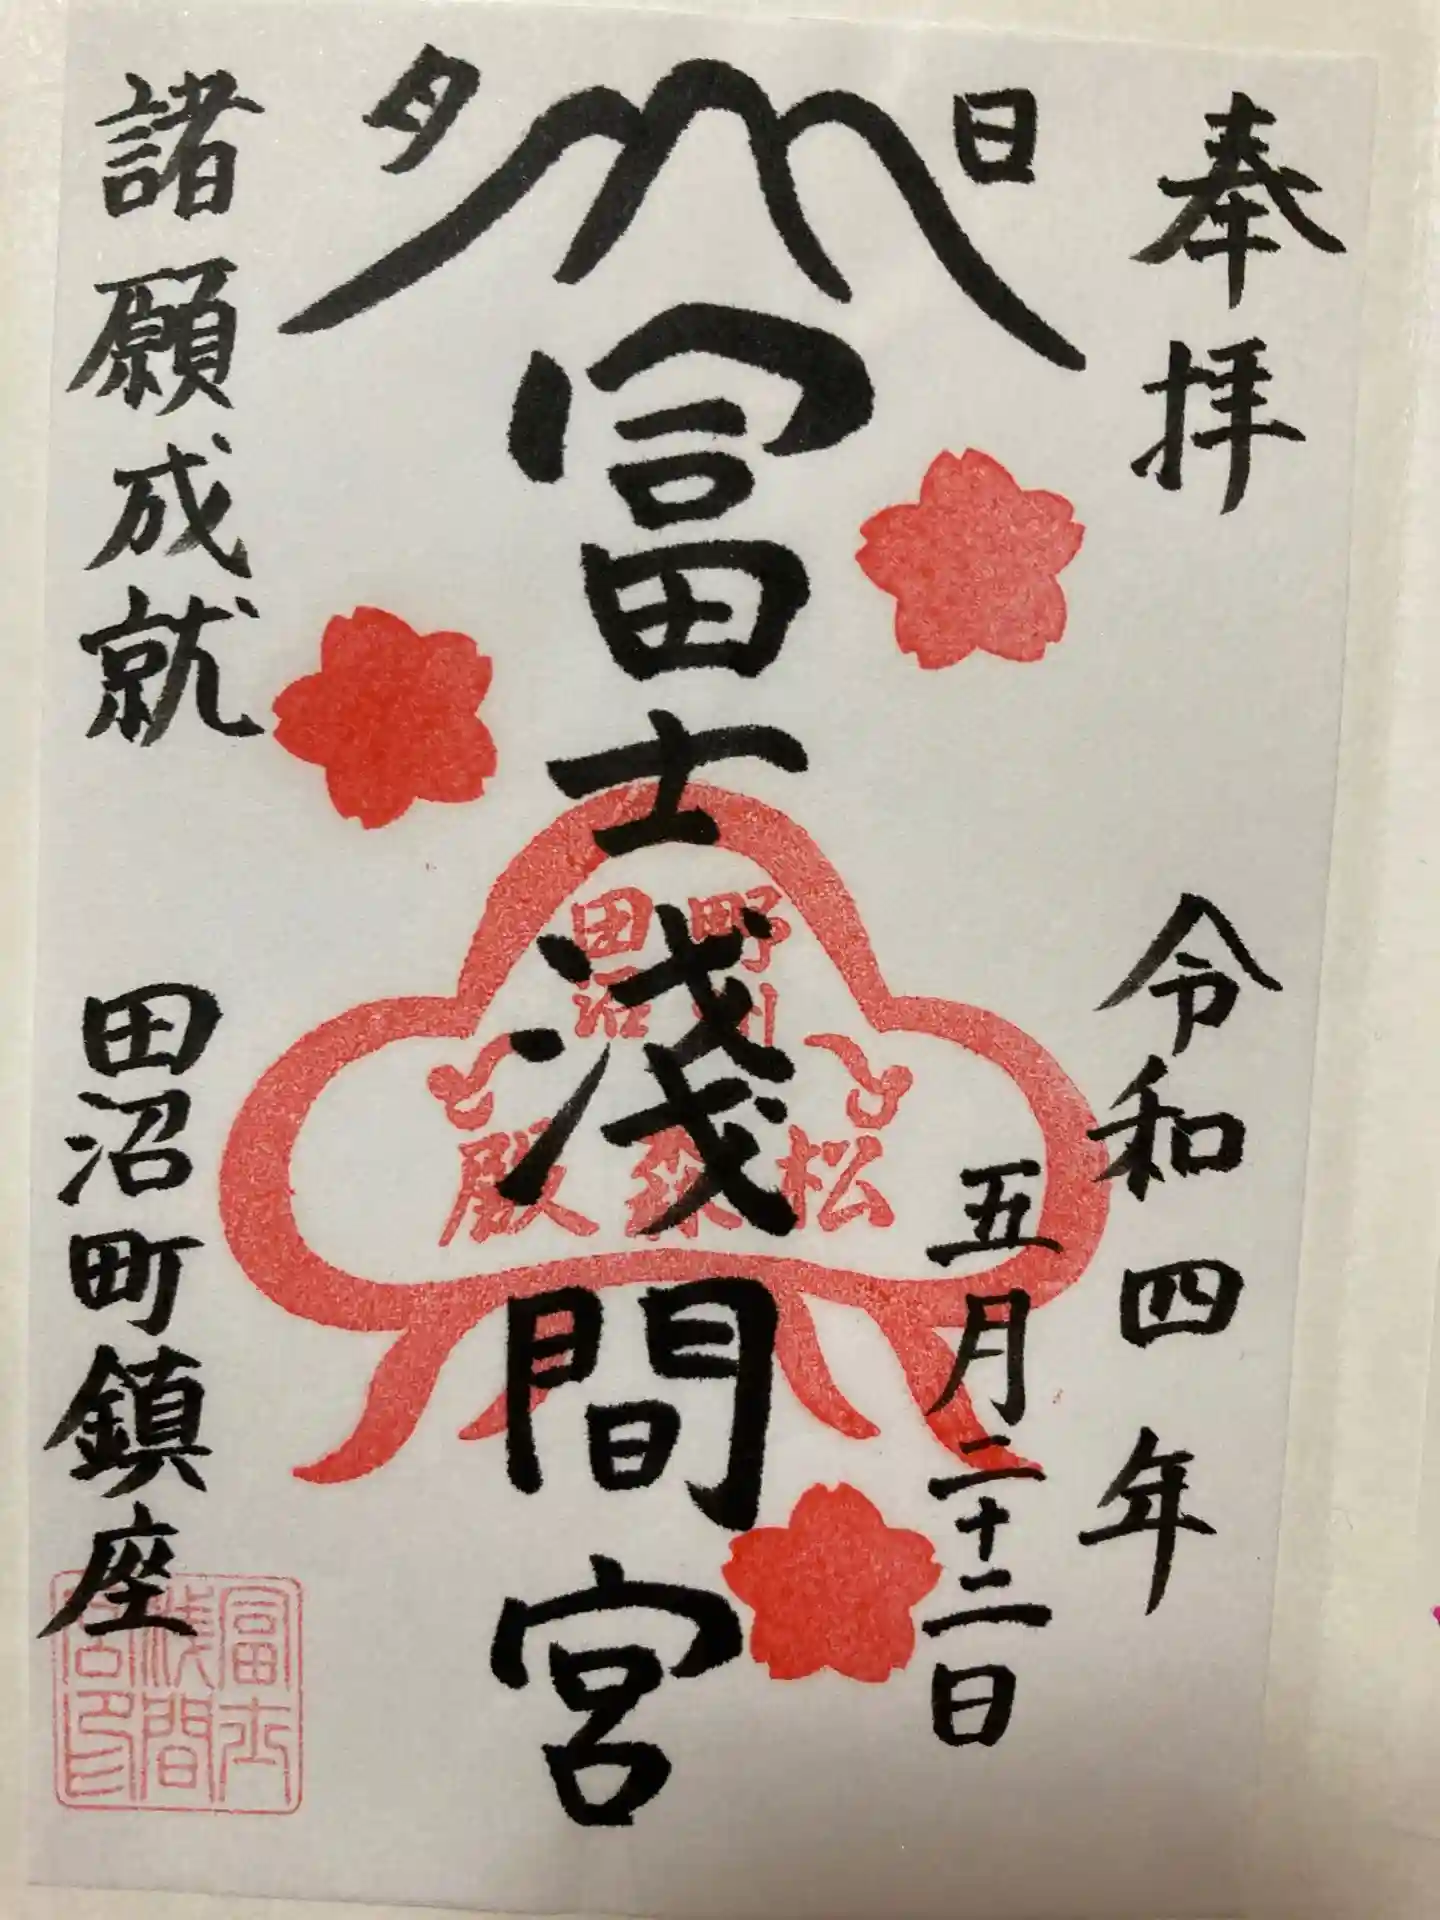 奉拝
令和四年
五月二十二日
日
月
冨士浅間宮
野州
田沼
松森殿
諸願成就
田沼町鎮座
冨士
浅間
宮印